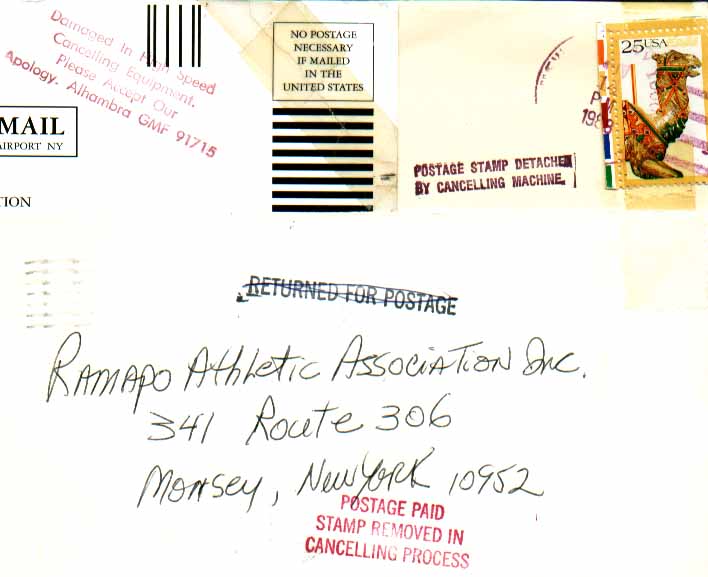 Damaged In High Speed
Cancelling Equipment.
Please Accept Our
Apology. Alhambra GMF 91715
MAIL
AIRPORT NY
TION
NO POSTAGE
NECESSARY
IF MAILED
IN THE
UNITED STATES
POSTAGE STAMP DETACHED
BY CANCELLING MACHINE.
25USA
RETURNED FOR POSTAGE
Ramapo Athletic Association Inc.
341 Route 306
Monsey, New York 10952
POSTAGE PAID
STAMP REMOVED IN
CANCELLING PROCESS